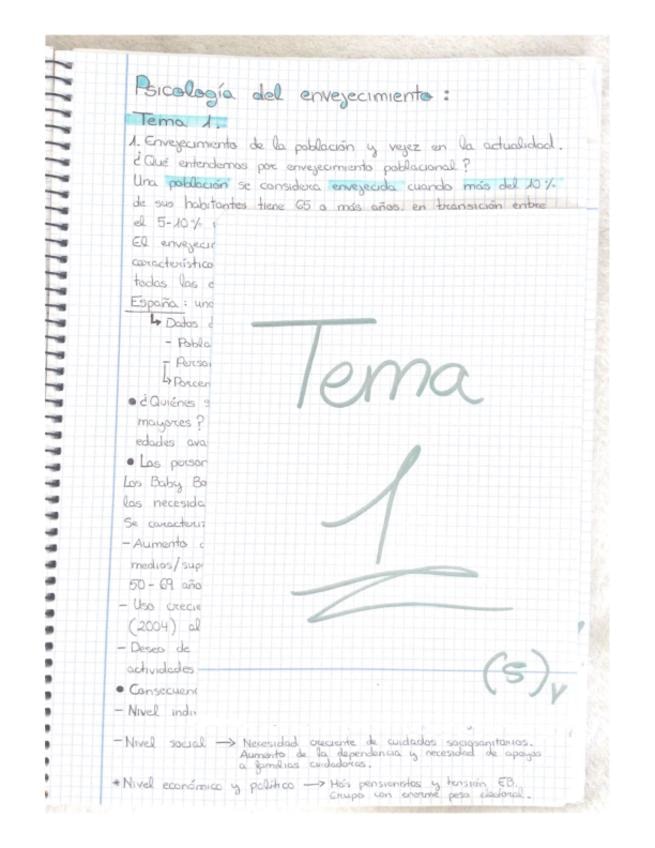 Psicología del envejecimiento:
Tema 1.
1. Envejecimiento de la población y vejez en la actualidad.
¿Qué entendemos por envejecimiento poblacional?
Una población se considera envejecida cuando más del 10%
de sus habitantes tiene 65 o más años, en transición entre
el 5-10%
El envejecir
característico
todas las
España: una
↳ Datos
- Pobla
- Perso
↳ Porcen
• ¿Quiénes
mayores?
edades ava
• Las person
Los Baby Bo
las necesida
Se caracteriz
- Aumento
medios/sup
50-69 año
- Uso crecie
(2004) al
- Deseo de
actividades
• Consecuen
- Nivel indi
Tema
1
(5)
- Nivel social → Necesidad creciente de cuidados sociosanitarios.
Aumento de la dependencia y necesidad de apoyos
a familias cuidadoras.
* Nivel económico y político → Más pensionistas y tensión EB.
Grupo con enorme peso electoral.